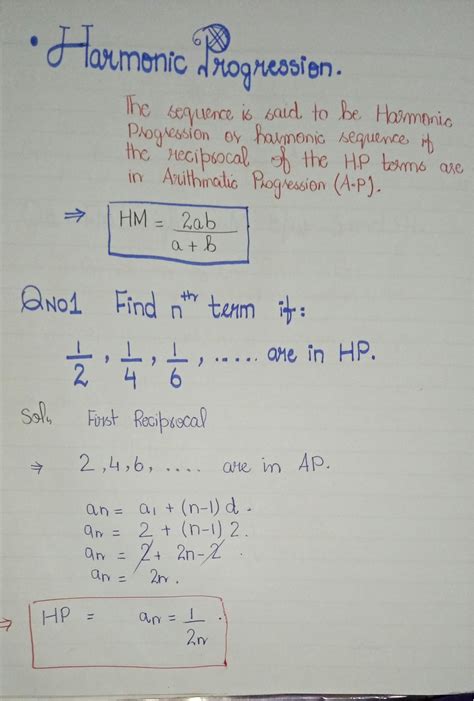 • Harmonic Progression.
The sequence is said to be Harmonic
Progression or harmonic sequence if
the reciprocal of the HP terms are
in Arithmatic Progression (A-P).
⇒ HM = 2ab / a + b
QNO1 Find nth term if:
1/2, 1/4, 1/6, ..... are in HP.
Sol, First Reciprocal
⇒ 2, 4, 6, .... are in AP.
an = a1 + (n-1) d.
an = 2 + (n-1) 2.
an = 2 + 2n - 2
an = 2n.
⇒ HP = an = 1/2n.